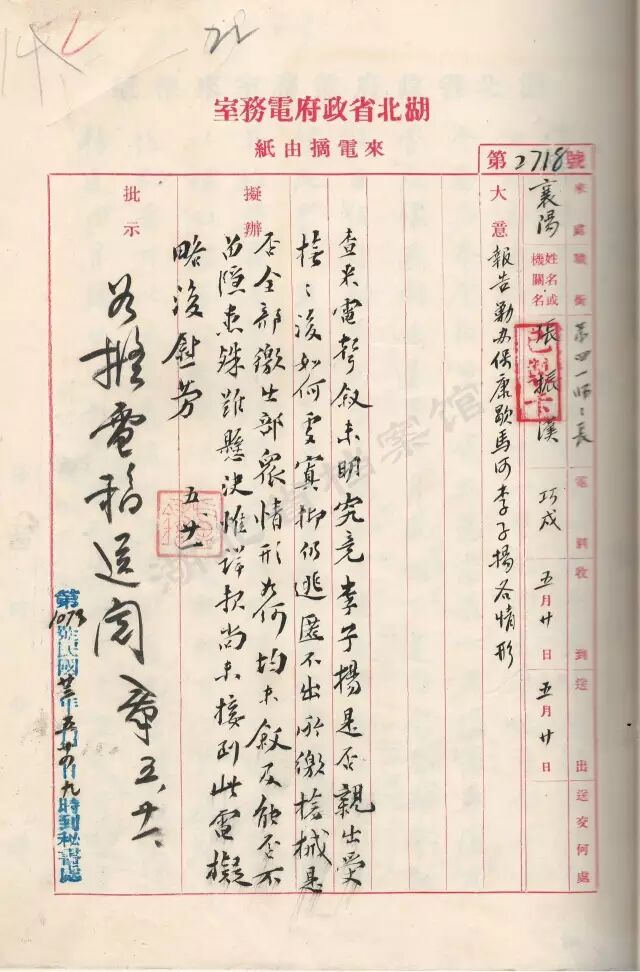 湖北省政府電務室
來電摘由紙
第2718號
來處
襄陽
職銜
第四一師師長
姓名或機關名
張振漢
巧戌
電到
收到
五月廿日
送出
五月廿日
送交何處
大意
報告勦办保康歇馬河李子揚各情形
擬辦
查来電声叙未明究竟李子揚是否親出受
撫撫後如何安寘抑仍逃匿不出所繳槍械是
否全部缴出部眾情形如何均未叙及能否不
留隱患殊难懸決惟詳報尚未接到此電擬
略復慰劳
五、廿一
批示
如擬電稿送閱
五、廿一
第1073號民國廿三年五月廿四日九時到秘書處
湖北省档案馆